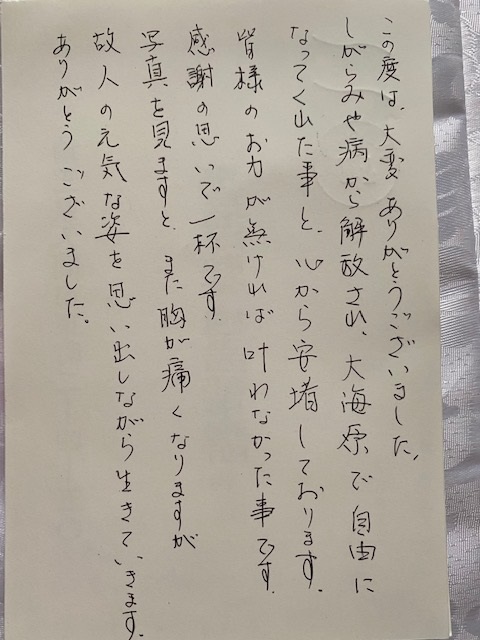 この度は、大変ありがとうございました。
しがらみや病から解放され、大海原で自由に
なってくれた事と、心から安堵しております。
皆様のお力が無ければ叶わなかった事です。
感謝の思いで一杯です。
写真を見ますと、また胸が痛くなりますが
故人の元気な姿を思い出しながら生きていきます。
ありがとうございました。